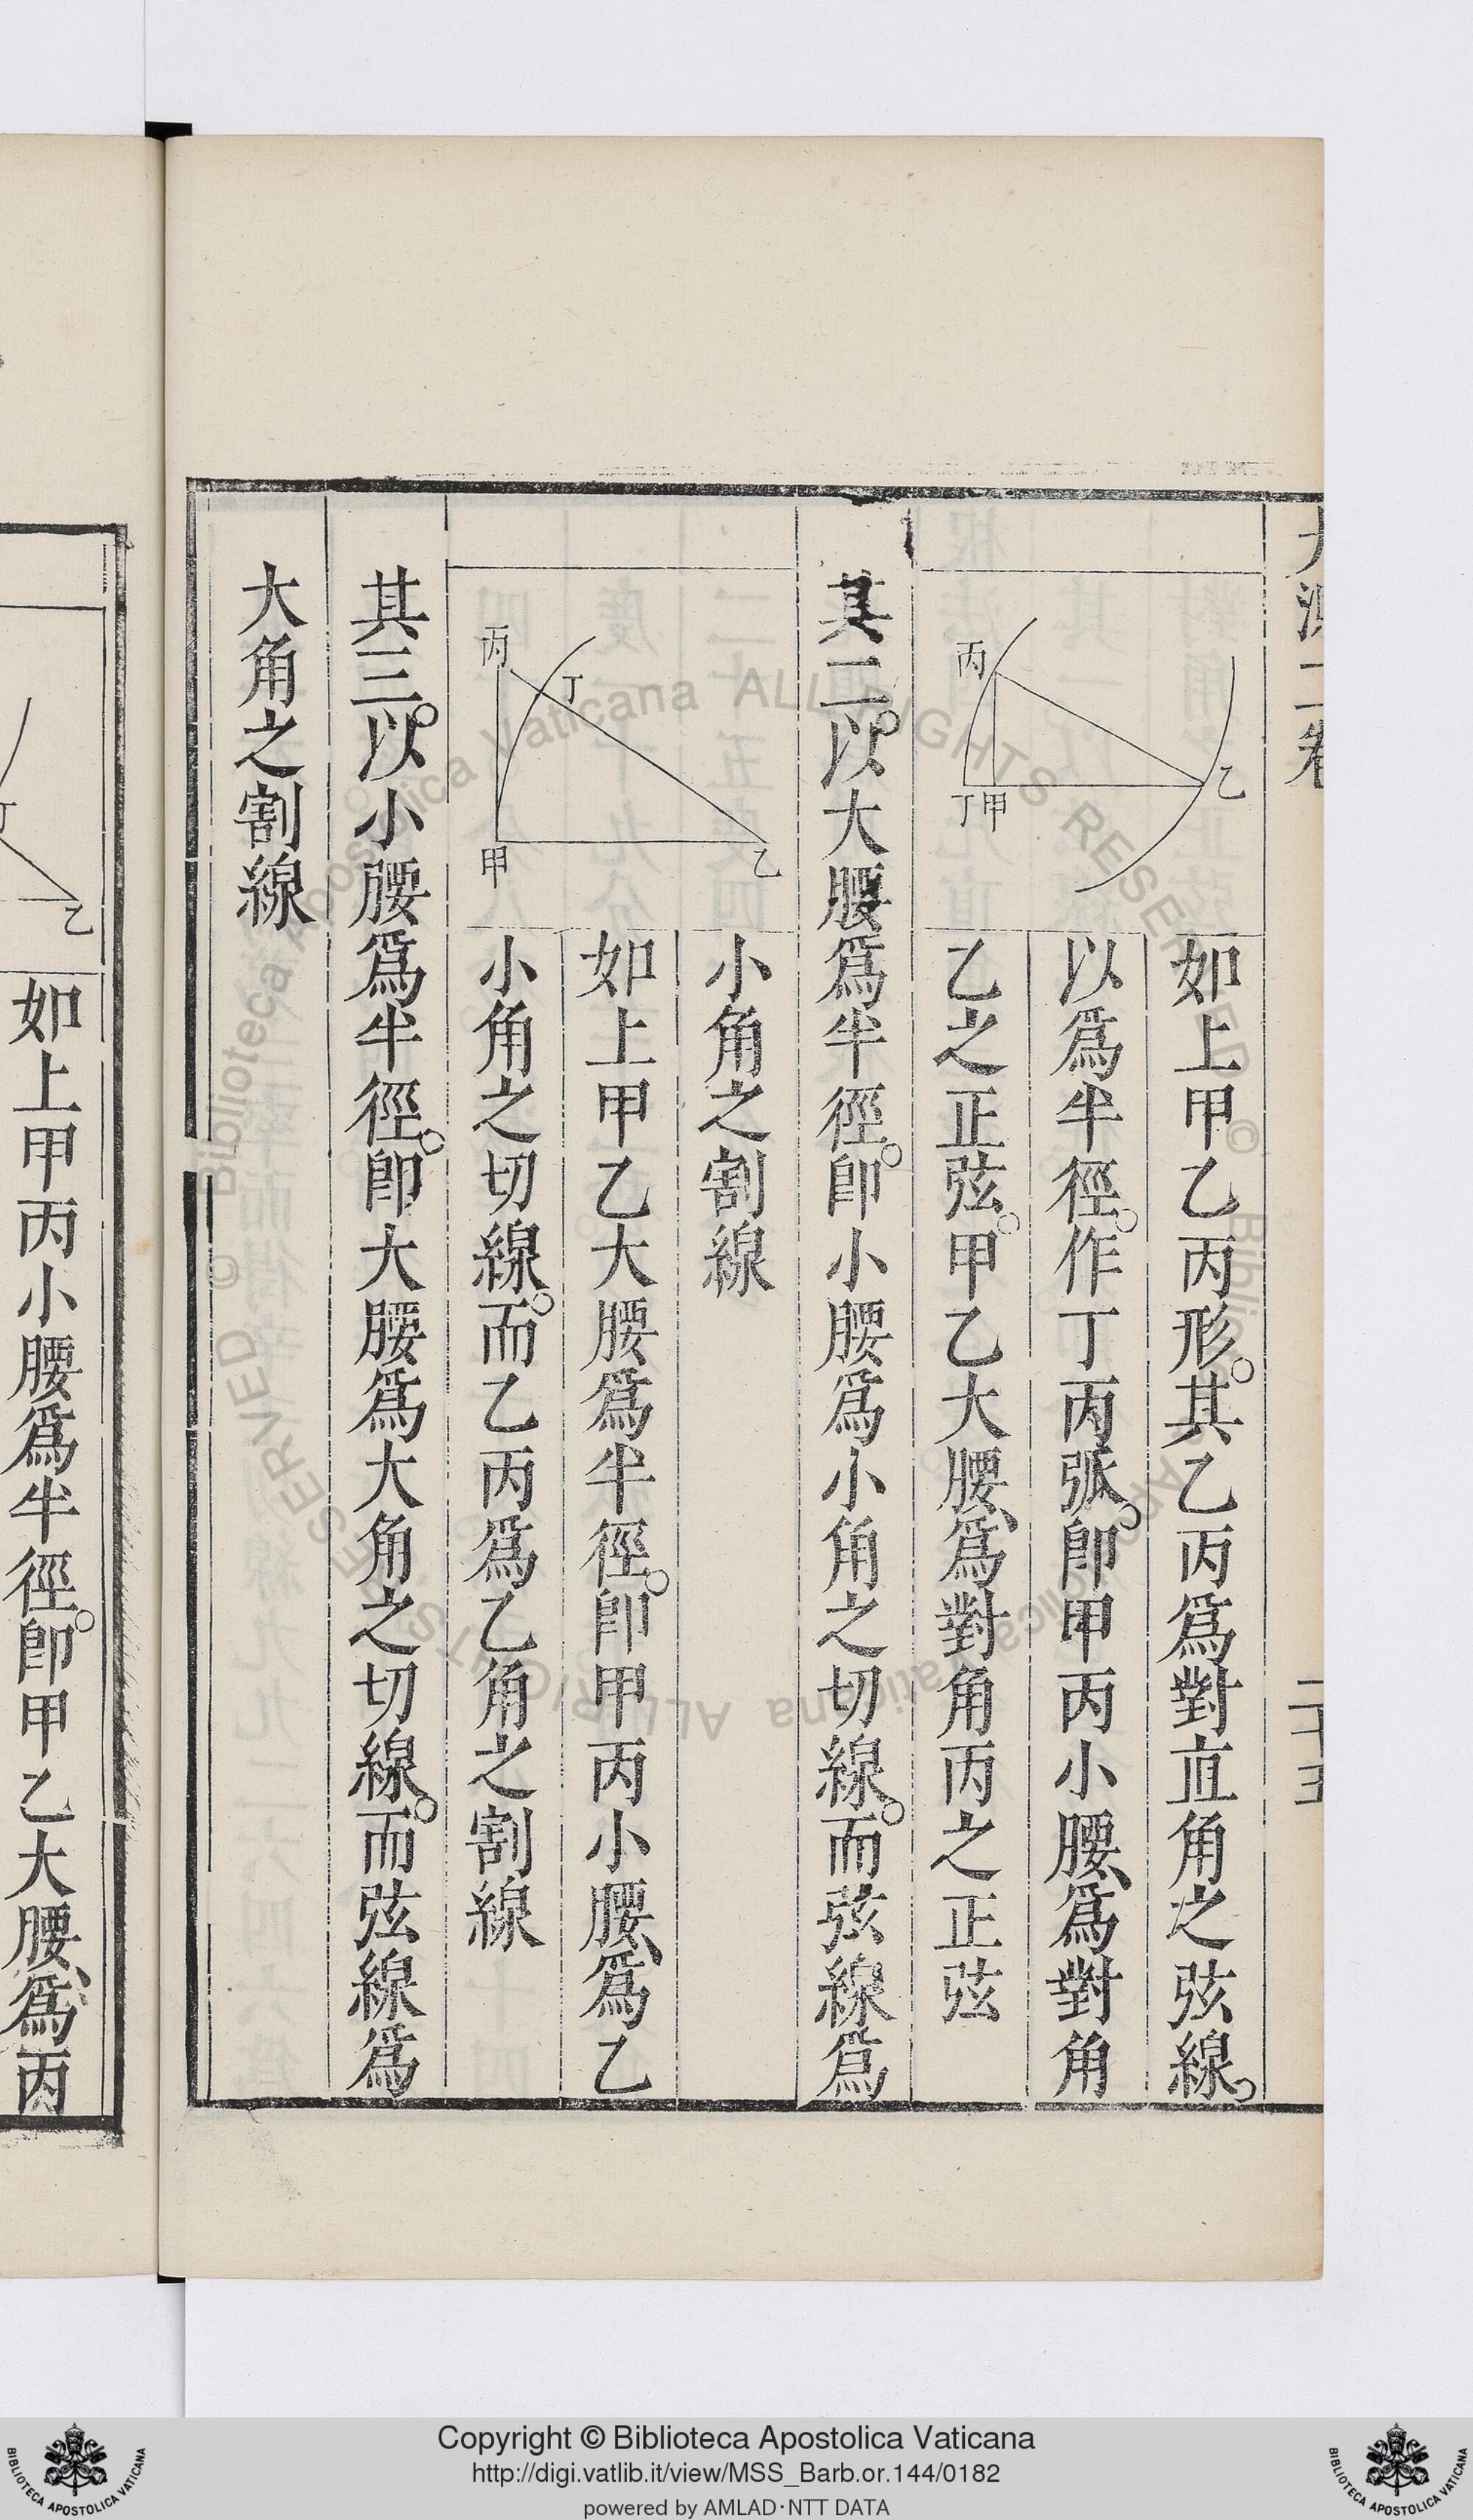 大測二卷
二十五
丙
乙
丁甲
如上甲乙丙形。其乙丙爲對直角之弦線。
以爲半徑。作丁丙弧。卽甲丙小腰、爲對角
乙之正弦。甲乙大腰、爲對角丙之正弦
其二。以大腰爲半徑。卽小腰爲小角之切線。而弦線爲
小角之割線
丙
丁
甲
乙
如上甲乙大腰爲半徑。卽甲丙小腰、爲乙
小角之切線。而乙丙爲乙角之割線
其三。以小腰爲半徑。卽大腰爲大角之切線。而弦線爲
大角之割線
丁
乙
如上甲丙小腰爲半徑。卽甲乙大腰、爲丙
© Biblioteca Apostolica Vaticana ALL RIGHTS RESERVED
© Biblioteca Apostolica Vaticana ALL RIGHTS RESERVED
BIBLIOTECA APOSTOLICA VATICANA
Copyright © Biblioteca Apostolica Vaticana
http://digi.vatlib.it/view/MSS_Barb.or.144/0182
powered by AMLAD·NTT DATA
BIBLIOTECA APOSTOLICA VATICANA